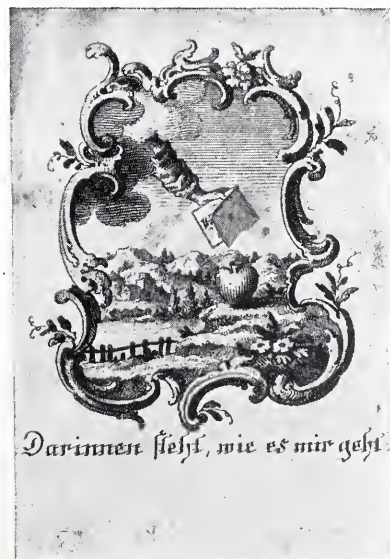 Darinnen steht, wie es mir geht.